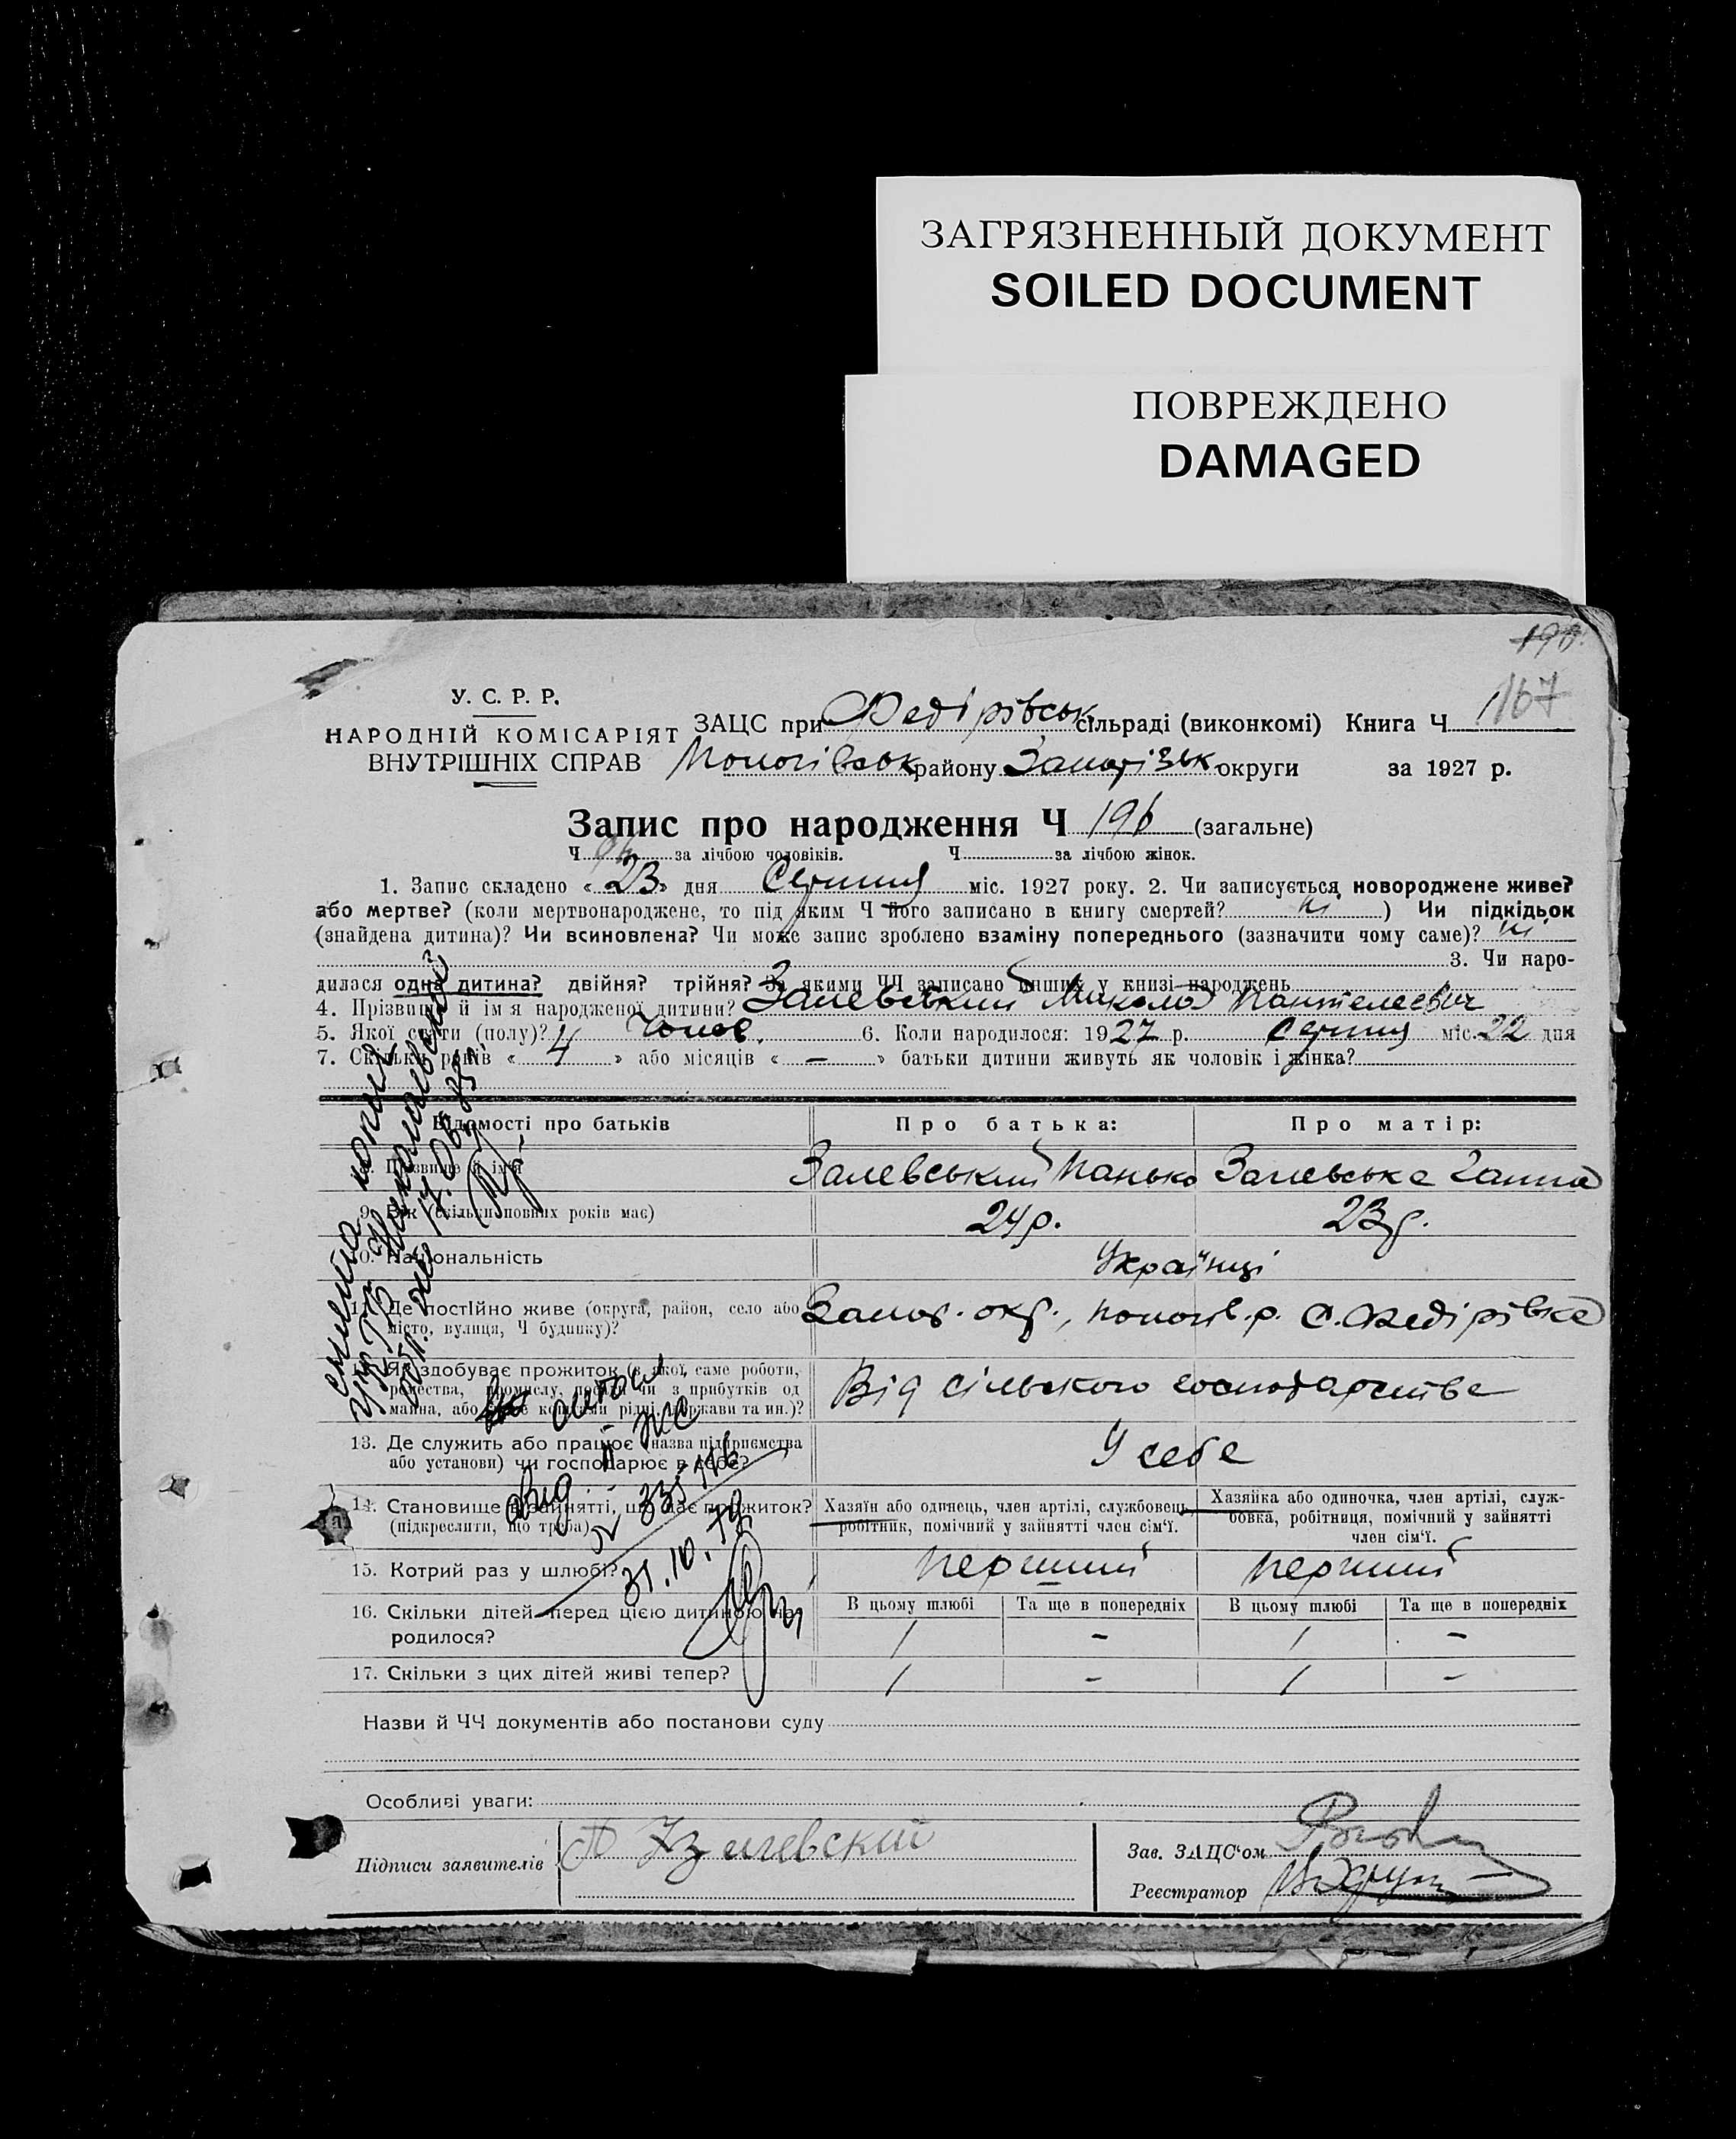 ЗАГРЯЗНЕННЫЙ ДОКУМЕНТ
SOILED DOCUMENT
ПОВРЕЖДЕНО
DAMAGED
190
167
У. С. Р. Р.
НАРОДНІЙ КОМІСАРІЯТ
ВНУТРІШНІХ СПРАВ
ЗАЦС при Федірівськ сільраді (виконкомі) Книга Ч
Пологівськ району Запорізьк округи за 1927 р.
Запис про народження Ч 196 (загальне)
Ч за лічбою чоловіків. Ч за лічбою жінок.
1. Запис складено « 23 » дня Серпня міс. 1927 року. 2. Чи записується новороджене живе?
або мертве? (коли мертвонароджене, то під яким Ч його записано в книгу смертей? ні ) Чи підкідьок
(знайдена дитина)? Чи всиновлена? Чи може запис зроблено взаміну попереднього (зазначити чому саме)? ні
3. Чи наро-
дилася одна дитина? двійня? трійня? За якими ЧЧ записано інших у книзі народжень
4. Прізвище й ім'я народженої дитини? Залевський Микола Пантелеевич
5. Якої стати (полу)? Чолов. 6. Коли народилося: 1927 р. Серпня міс. 22 дня
7. Скільки років « 4 » або місяців « — » батьки дитини живуть як чоловік і жінка?
Відомості про батьків Про батька: Про матір:
8. Прізвище й ім'я Залевський Панько Залевська Ганна
9. Вік (скільки повних років має) 24 р. 23 р.
10. Національність Українці
11. Де постійно живе (округа, район, село або Запор. окр., Пологів. р. С. Федірівка
місто, вулиця, Ч будинку)?
12. Як здобуває прожиток (з якої саме роботи,
ремества, промислу, посади чи з прибутків од Від сільського господарства
майна, або живе коштами рідні, держави та ин.)?
13. Де служить або працює (назва підприємства У себе
або установи) чи господарює в себе?
14. Становище в зайнятті, що дає прожиток? Хазяїн або одинець, член артілі, службовець, Хазяйка або одиночка, член артілі, служ-
(підкреслити, що треба) робітник, помічний у зайнятті член сім'ї. бовка, робітниця, помічний у зайнятті
член сім'ї.
15. Котрий раз у шлюбі? перший перший
16. Скільки дітей перед цією дитиною на- В цьому шлюбі Та ще в попередніх В цьому шлюбі Та ще в попередніх
родилося? 1 - 1 -
17. Скільки з цих дітей живі тепер? 1 - 1 -
Назви й ЧЧ документів або постанови суду
Особливі уваги:
Підписи заявителів
Зав. ЗАЦС'ом
Реєстратор
31.10.